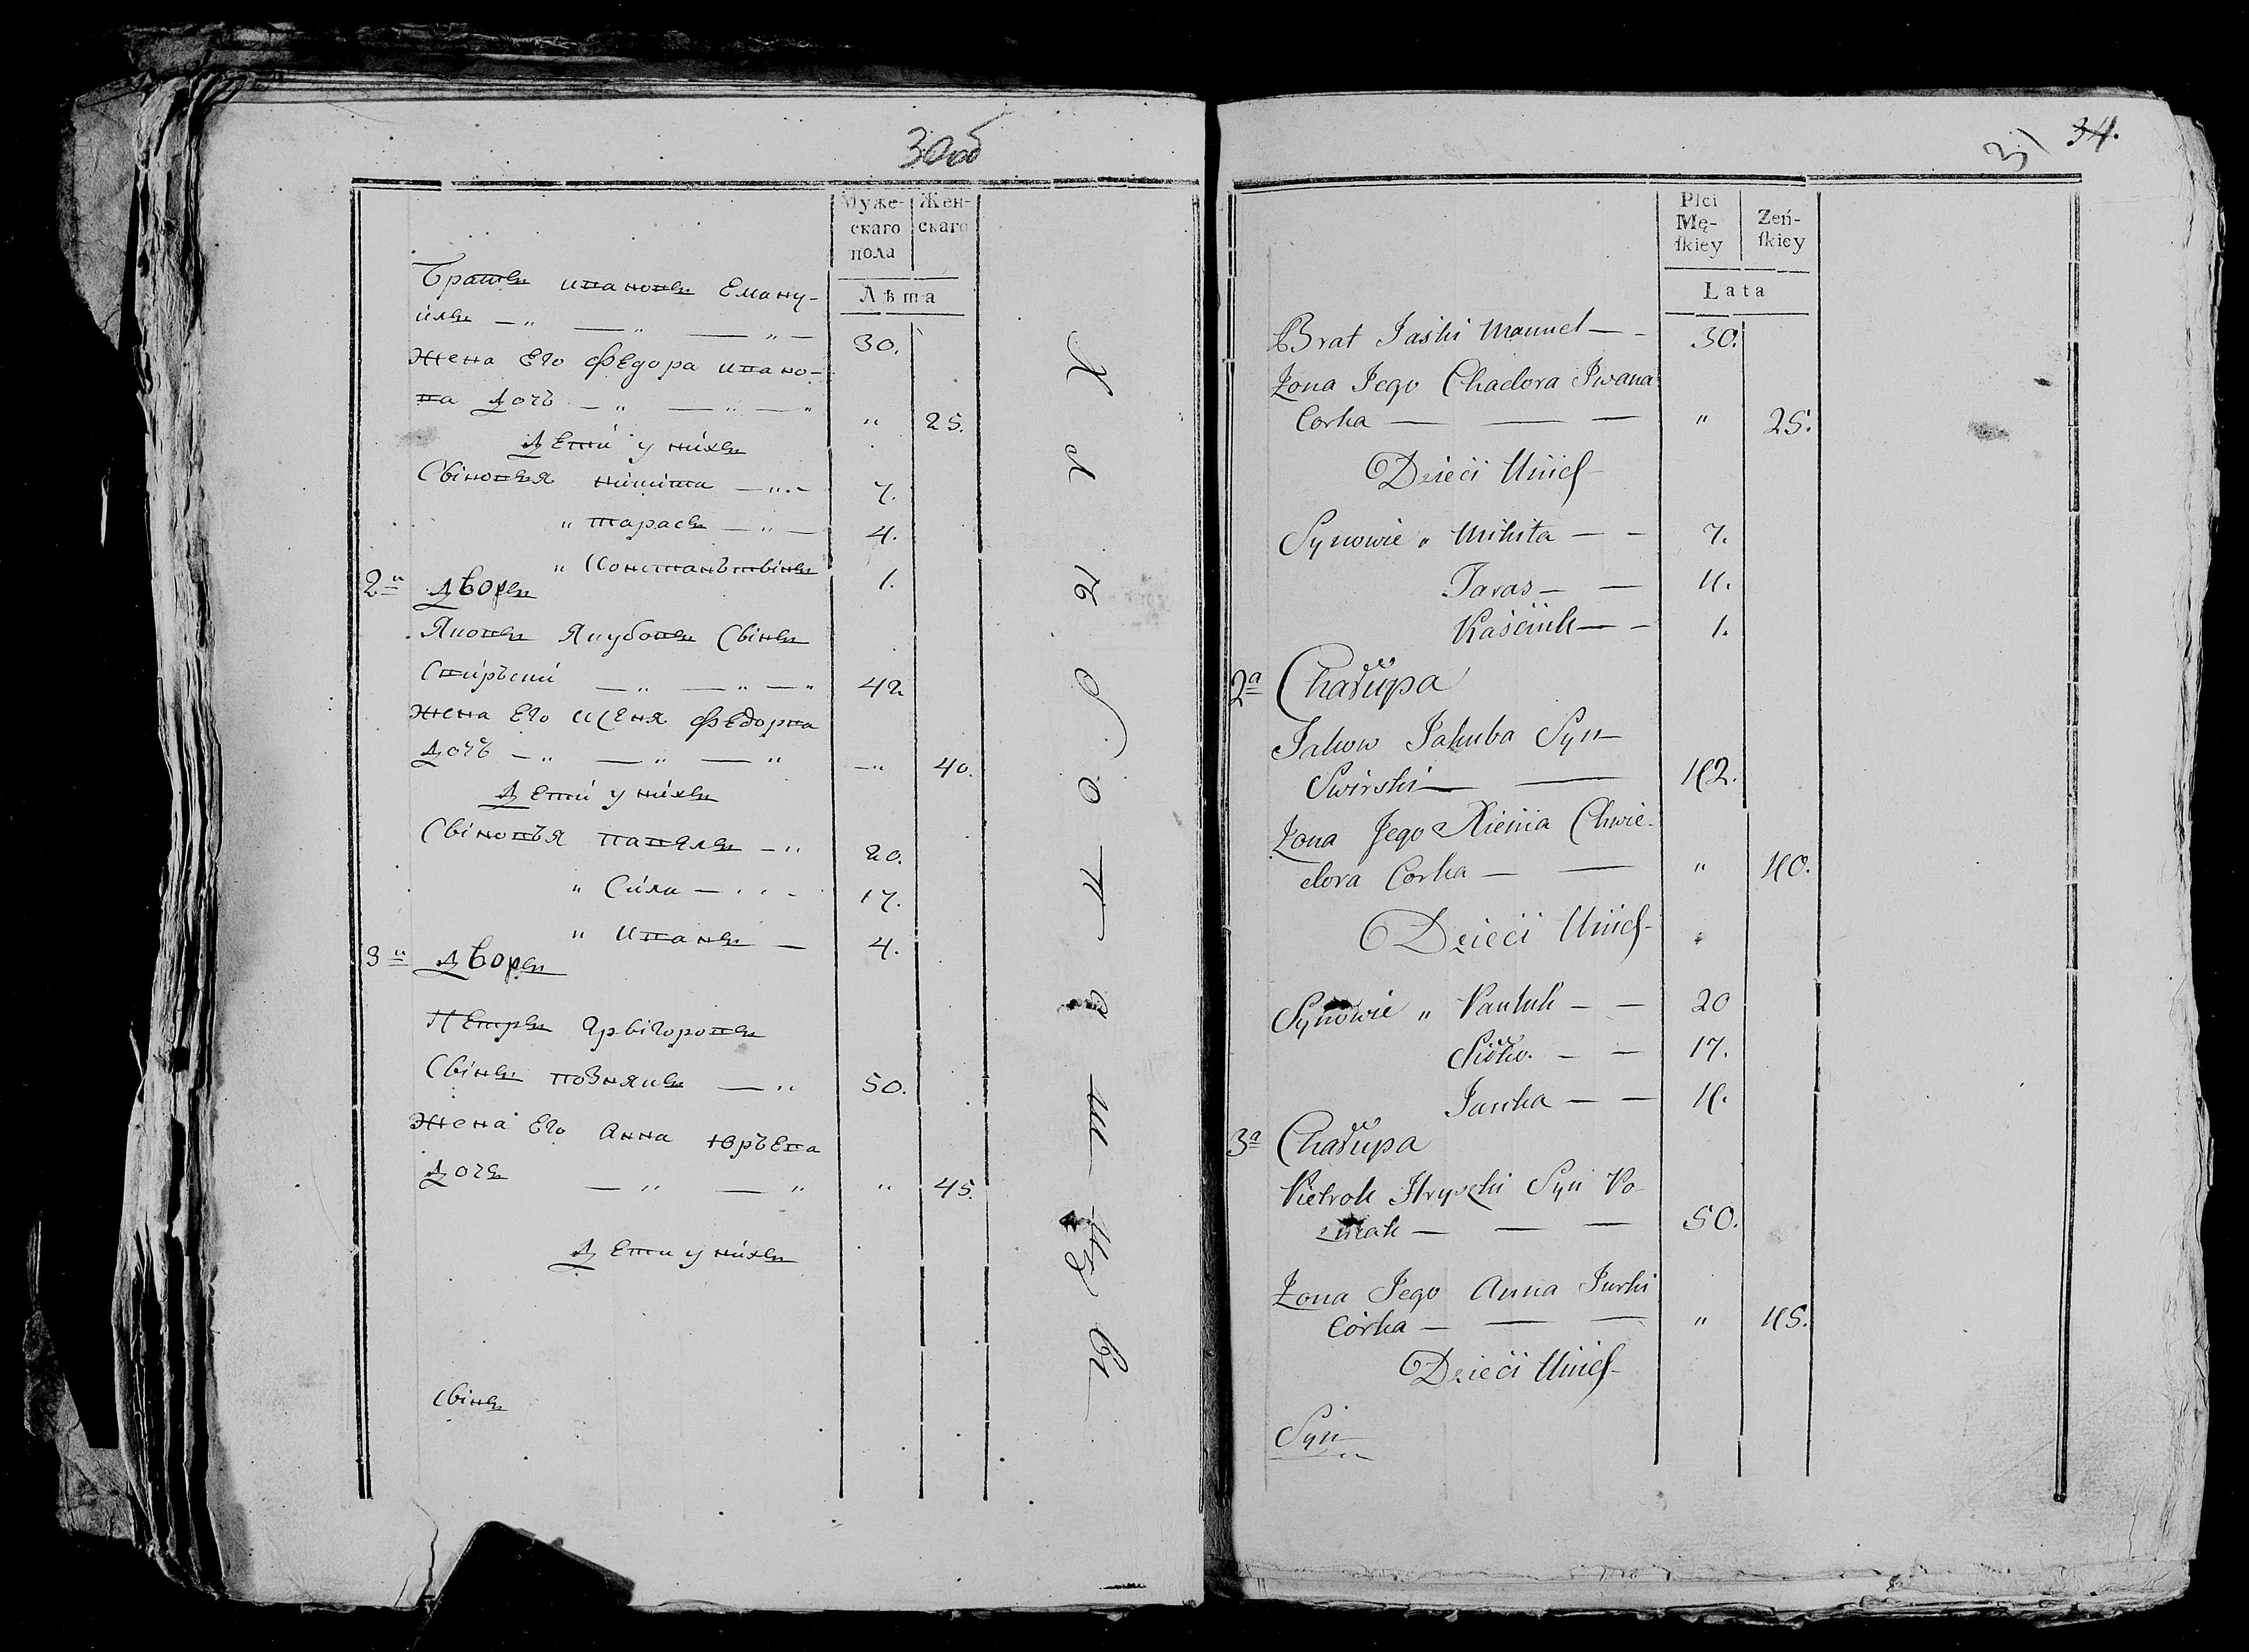 30об
Муже- Жен-
скаго скаго
пола
Лѣта
Братъ ивановъ Емануи-
илъ — „ — „ — „ — 30.
Жена Его Федора ивано-
ва Дочь — „ — „ — „ „ 25.
Дети у нихъ
Сыновья никита — „ — 7.
„ тарасъ — „ — 4.
„ Константынъ 1.
2й Дворъ
Яковъ Якубовъ Сынъ
Свирьски — „ — „ — „ 42
Жена Его Ксеня Федорва
Дочь — „ — „ — „ — „ 40.
Дети у нихъ
Сыновья павялъ — „ 20.
„ Сила — „ - 17.
„ Иванъ — 4.
3й Дворъ
Петръ Грыгоровъ
Сынъ познякъ — „ 50.
Жена Его Анна Юрьева
Дочъ — „ — „ „ 45.
Дети у нихъ
Сынъ
31 34.
Płci
Mę- Żeń-
ſkiey ſkiey
Lata
Brat Jaśki Manuel — - 30.
Żona Jego Chadora Jwana
Corka — — — „ 25.
Dzieci Unich
Synowie „ Mikita — - 7.
Taras — — 4.
Kaściuk — - 1.
2a Chałupa
Jakow Jakuba Syn
Swirski — — 42.
Żona Jego Xienia Chwie-
dora Corka — — „ 40.
Dzieci Unich
Synowie „ Pauluk — — 20
Siłko. — — 17.
Janka — — 4.
3a Chałupa
Pietrok Hryszki Syn Po-
zniak — — — 50.
Żona Jego Anna Jurki
Córka — — — „ 45.
Dzieci Unich
Syn